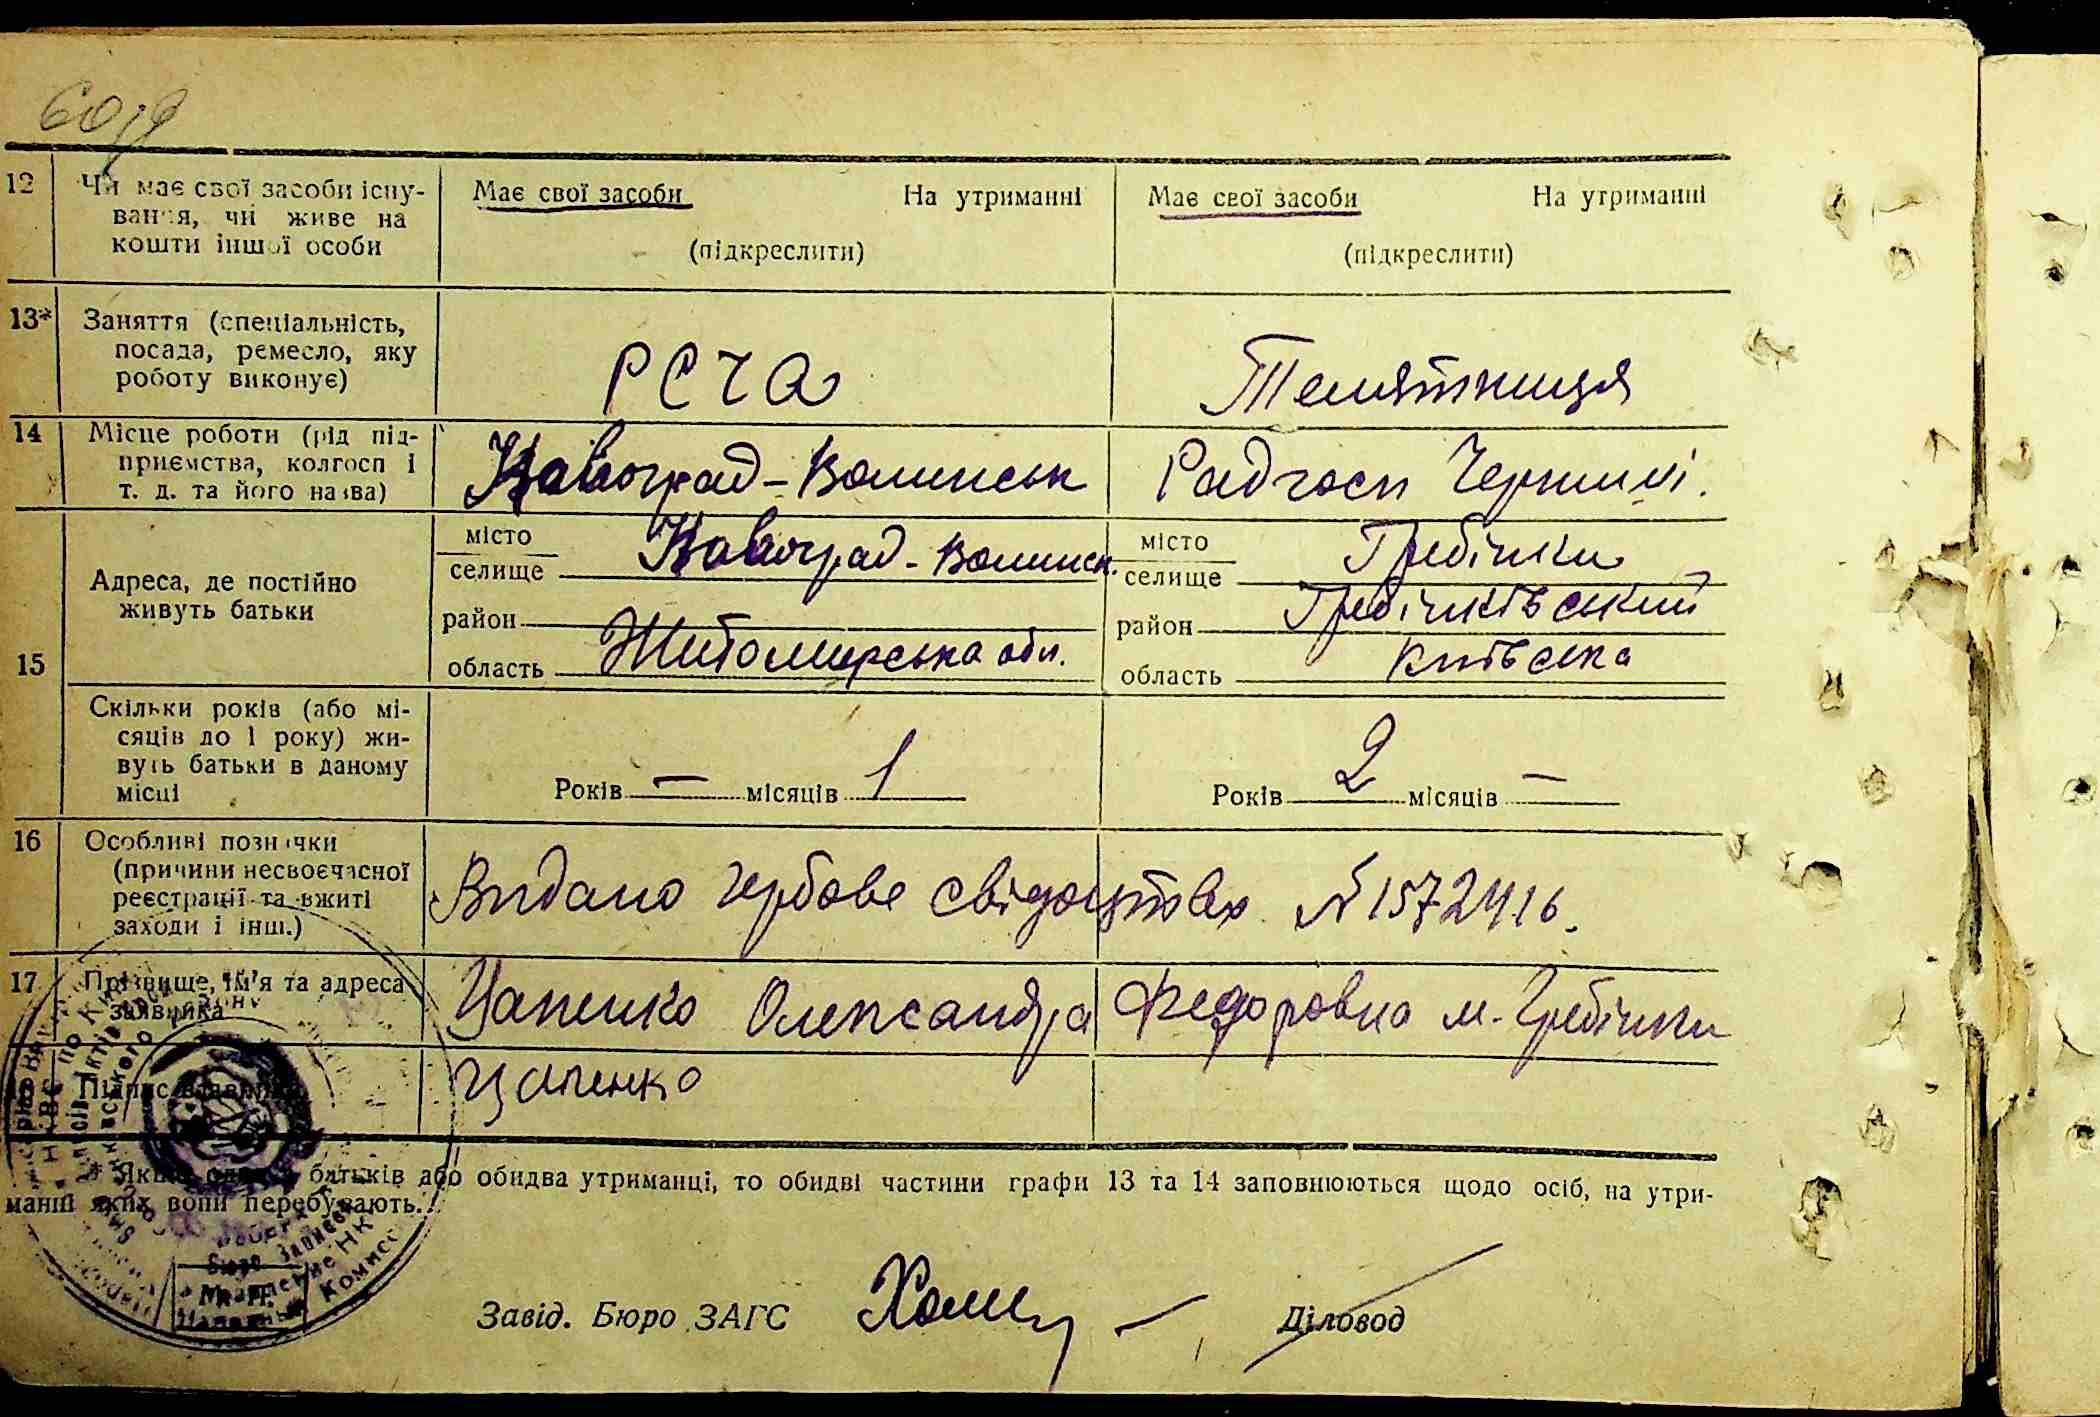 12 Чи має свої засоби існу-
вання, чи живе на
кошти іншої особи
Має свої засоби На утриманні
(підкреслити)
Має свої засоби На утриманні
(підкреслити)
13* Заняття (спеціальність,
посада, ремесло, яку
роботу виконує)
РСЧА
Телятниця
14 Місце роботи (рід під-
приємства, колгосп і
т. д. та його назва)
Новоград-Волинськ
Радгосп
15 Адреса, де постійно
живуть батьки
місто
селище Новоград-Волинськ.
район
область Житомирська обл.
місто
селище Гребінки
район Гребінківський
область Київська
Скільки років (або мі-
сяців до 1 року) жи-
вуть батьки в даному
місці
Років — місяців 1
Років 2 місяців —
16 Особливі позначки
(причини несвоєчасної
реєстрації та вжиті
заходи і інш.)
Видано гербове свідоцтво № 1572416.
17 Прізвище, ім'я та адреса
заявника
Цапенко Олександра Федоровна м. Гребінки
18 Підпис заявника
Цапенко
* Якщо один з батьків або обидва утриманці, то обидві частини графи 13 та 14 заповнюються щодо осіб, на утри-
манні яких вони перебувають.
Завід. Бюро ЗАГС
Діловод